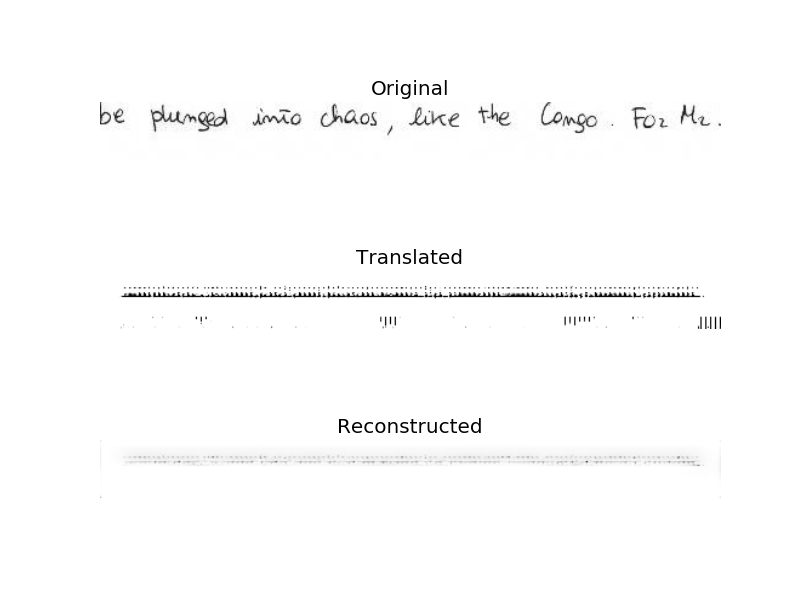 Original
be plunged into chaos, like the Congo. For Mr.
Translated
Reconstructed